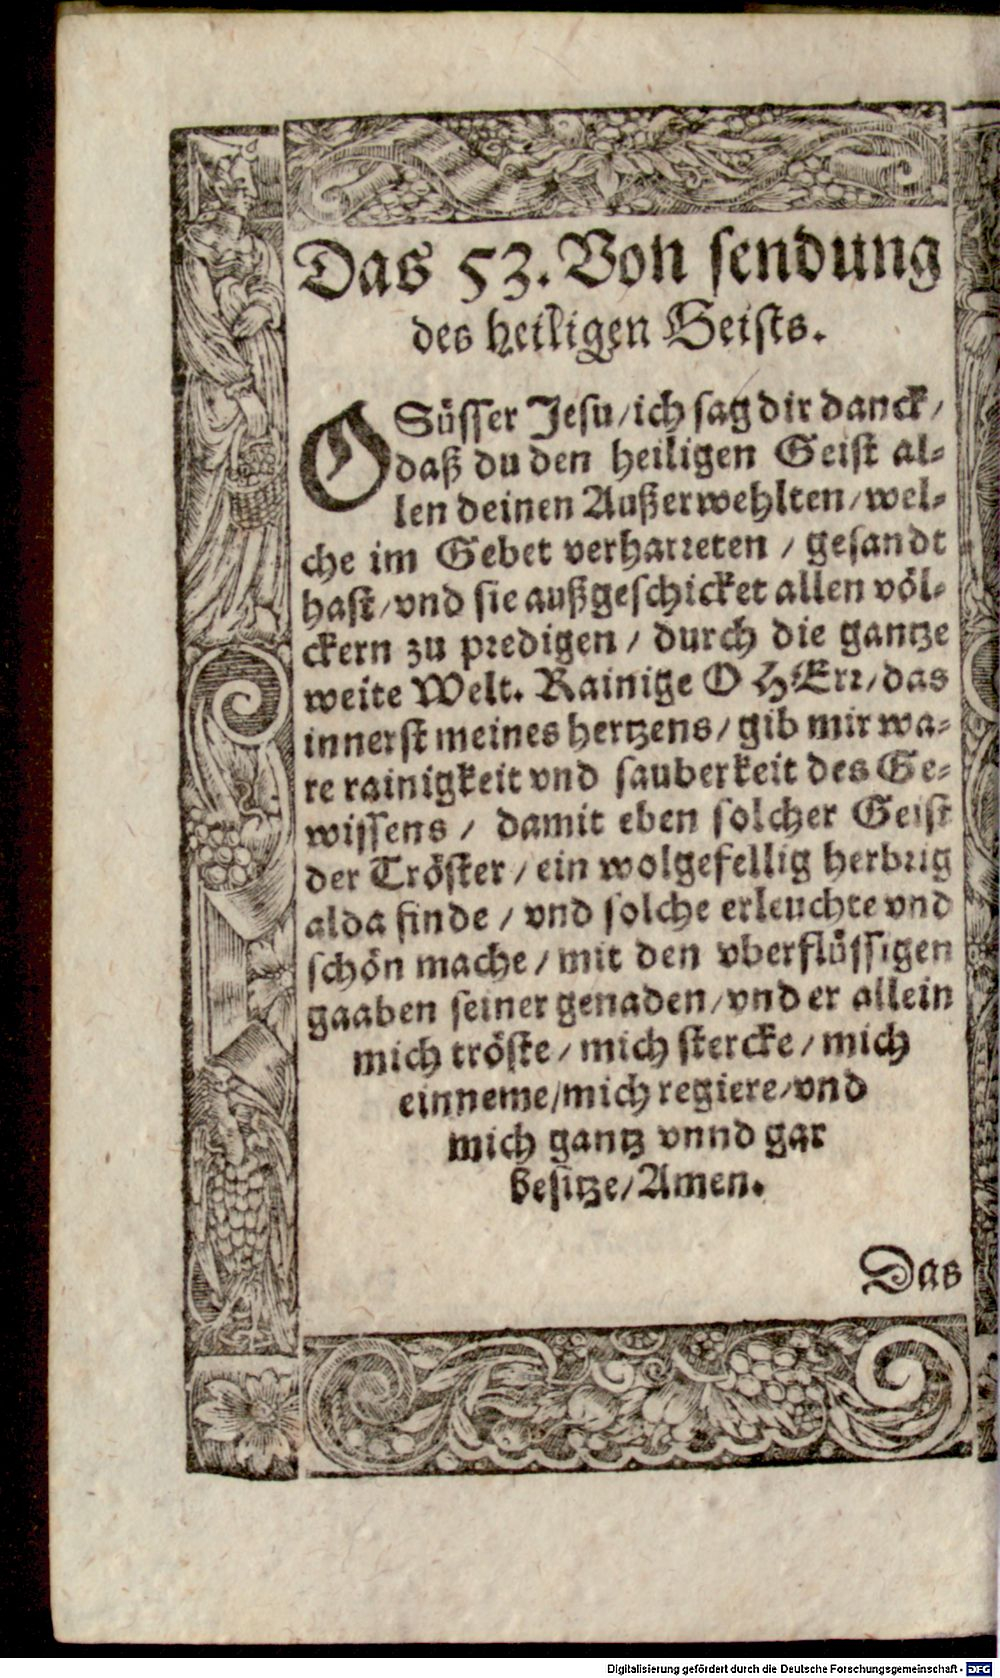 Das 53. Von sendung
des heiligen Geists.
O Süsser Jesu/ich sag dir danck/
daß du den heiligen Geist al-
len deinen Außerwehlten/wel-
che im Gebet verharreten / gesandt
hast/vnd sie außgeschicket allen völ-
ckern zu predigen / durch die gantze
weite Welt. Rainige O HErr/das
innerst meines hertzens/gib mir wa-
re rainigkeit vnd sauberkeit des Ge-
wissens / damit eben solcher Geist
der Tröster/ein wolgefellig herbrig
alda finde / vnd solche erleuchte vnd
schön mache/mit den vberflüssigen
gaaben seiner genaden/vnd er allein
mich tröste/mich stercke/mich
einneme/mich regiere/vnd
mich gantz vnnd gar
besitze/Amen.
Das
Digitalisierung gefördert durch die Deutsche Forschungsgemeinschaft - DFG